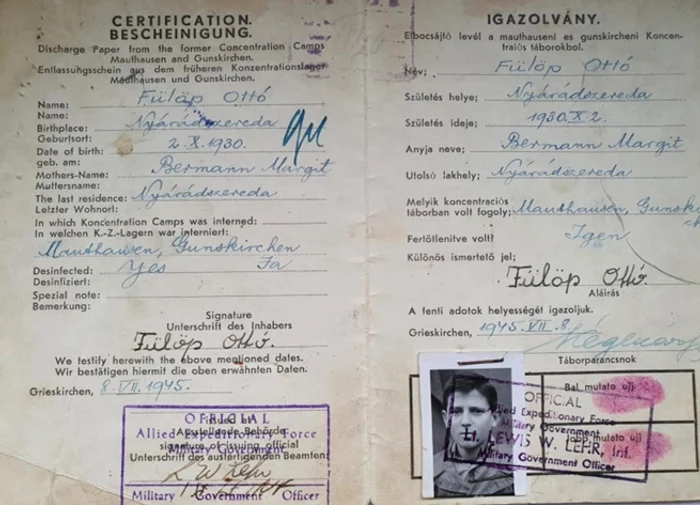 CERTIFICATION.
BESCHEINIGUNG.
Discharge Paper from the former Concentration Camps
Mauthausen and Gunskirchen.
Entlassungsschein aus dem früheren Konzentrationslager
Mauthausen und Gunskirchen.
Name: Fülöp Ottó
Name:
Birthplace: Nyárádszereda
Geburtsort:
Date of birth: 2. X. 1930.
geb. am:
Mothers-Name: Bermann Margit
Muttersname:
The last residence: Nyárádszereda
Letzter Wohnort:
In which Koncentration Camps was interned:
In welchen K.-Z.-Lagern war interniert:
Mauthausen, Gunskirchen
Desinfected: Yes Ja
Desinfiziert:
Spezial note:
Bemerkung:
Signature
Unterschrift des Inhabers
Fülöp Ottó.
We testify herewith the above mentioned dates.
Wir bestätigen hiermit die oben erwähnten Daten.
Grieskirchen, 8. VII. 1945.
OFFICIAL
Issued at
Allied Expeditionary Force
Ausstellende Behörde:
Military Government
signature of issuing official
Unterschrift des ausfertigenden Beamten:
L W Lehr
Military Government Officer
IGAZOLVÁNY.
Elbocsájtó levél a mauthauseni es gunskircheni Koncen-
traiós táborokbol.
Név: Fülöp Ottó
Születés helye: Nyárádszereda
Születés ideje: 1930. X. 2.
Anyja neve: Bermann Margit
Utolsó lakhely: Nyárádszereda
Melyik koncentrációs
táborban volt fogoly: Mauthausen, Gunski
Fertőtlenitve volt? Igen
Különös ismertető jel:
Fülöp Ottó.
Aláirás
A fenti adatok helyességét igazoljuk.
Grieskirchen, 1945. VII. 8.
Táborparancsnok
Bal mutato ujj
OFFICIAL
Allied Expeditionary Force
Military Government
Lt. LEWIS W. LEHR, Inf.
Jobb mutato ujj
Military Government Officer